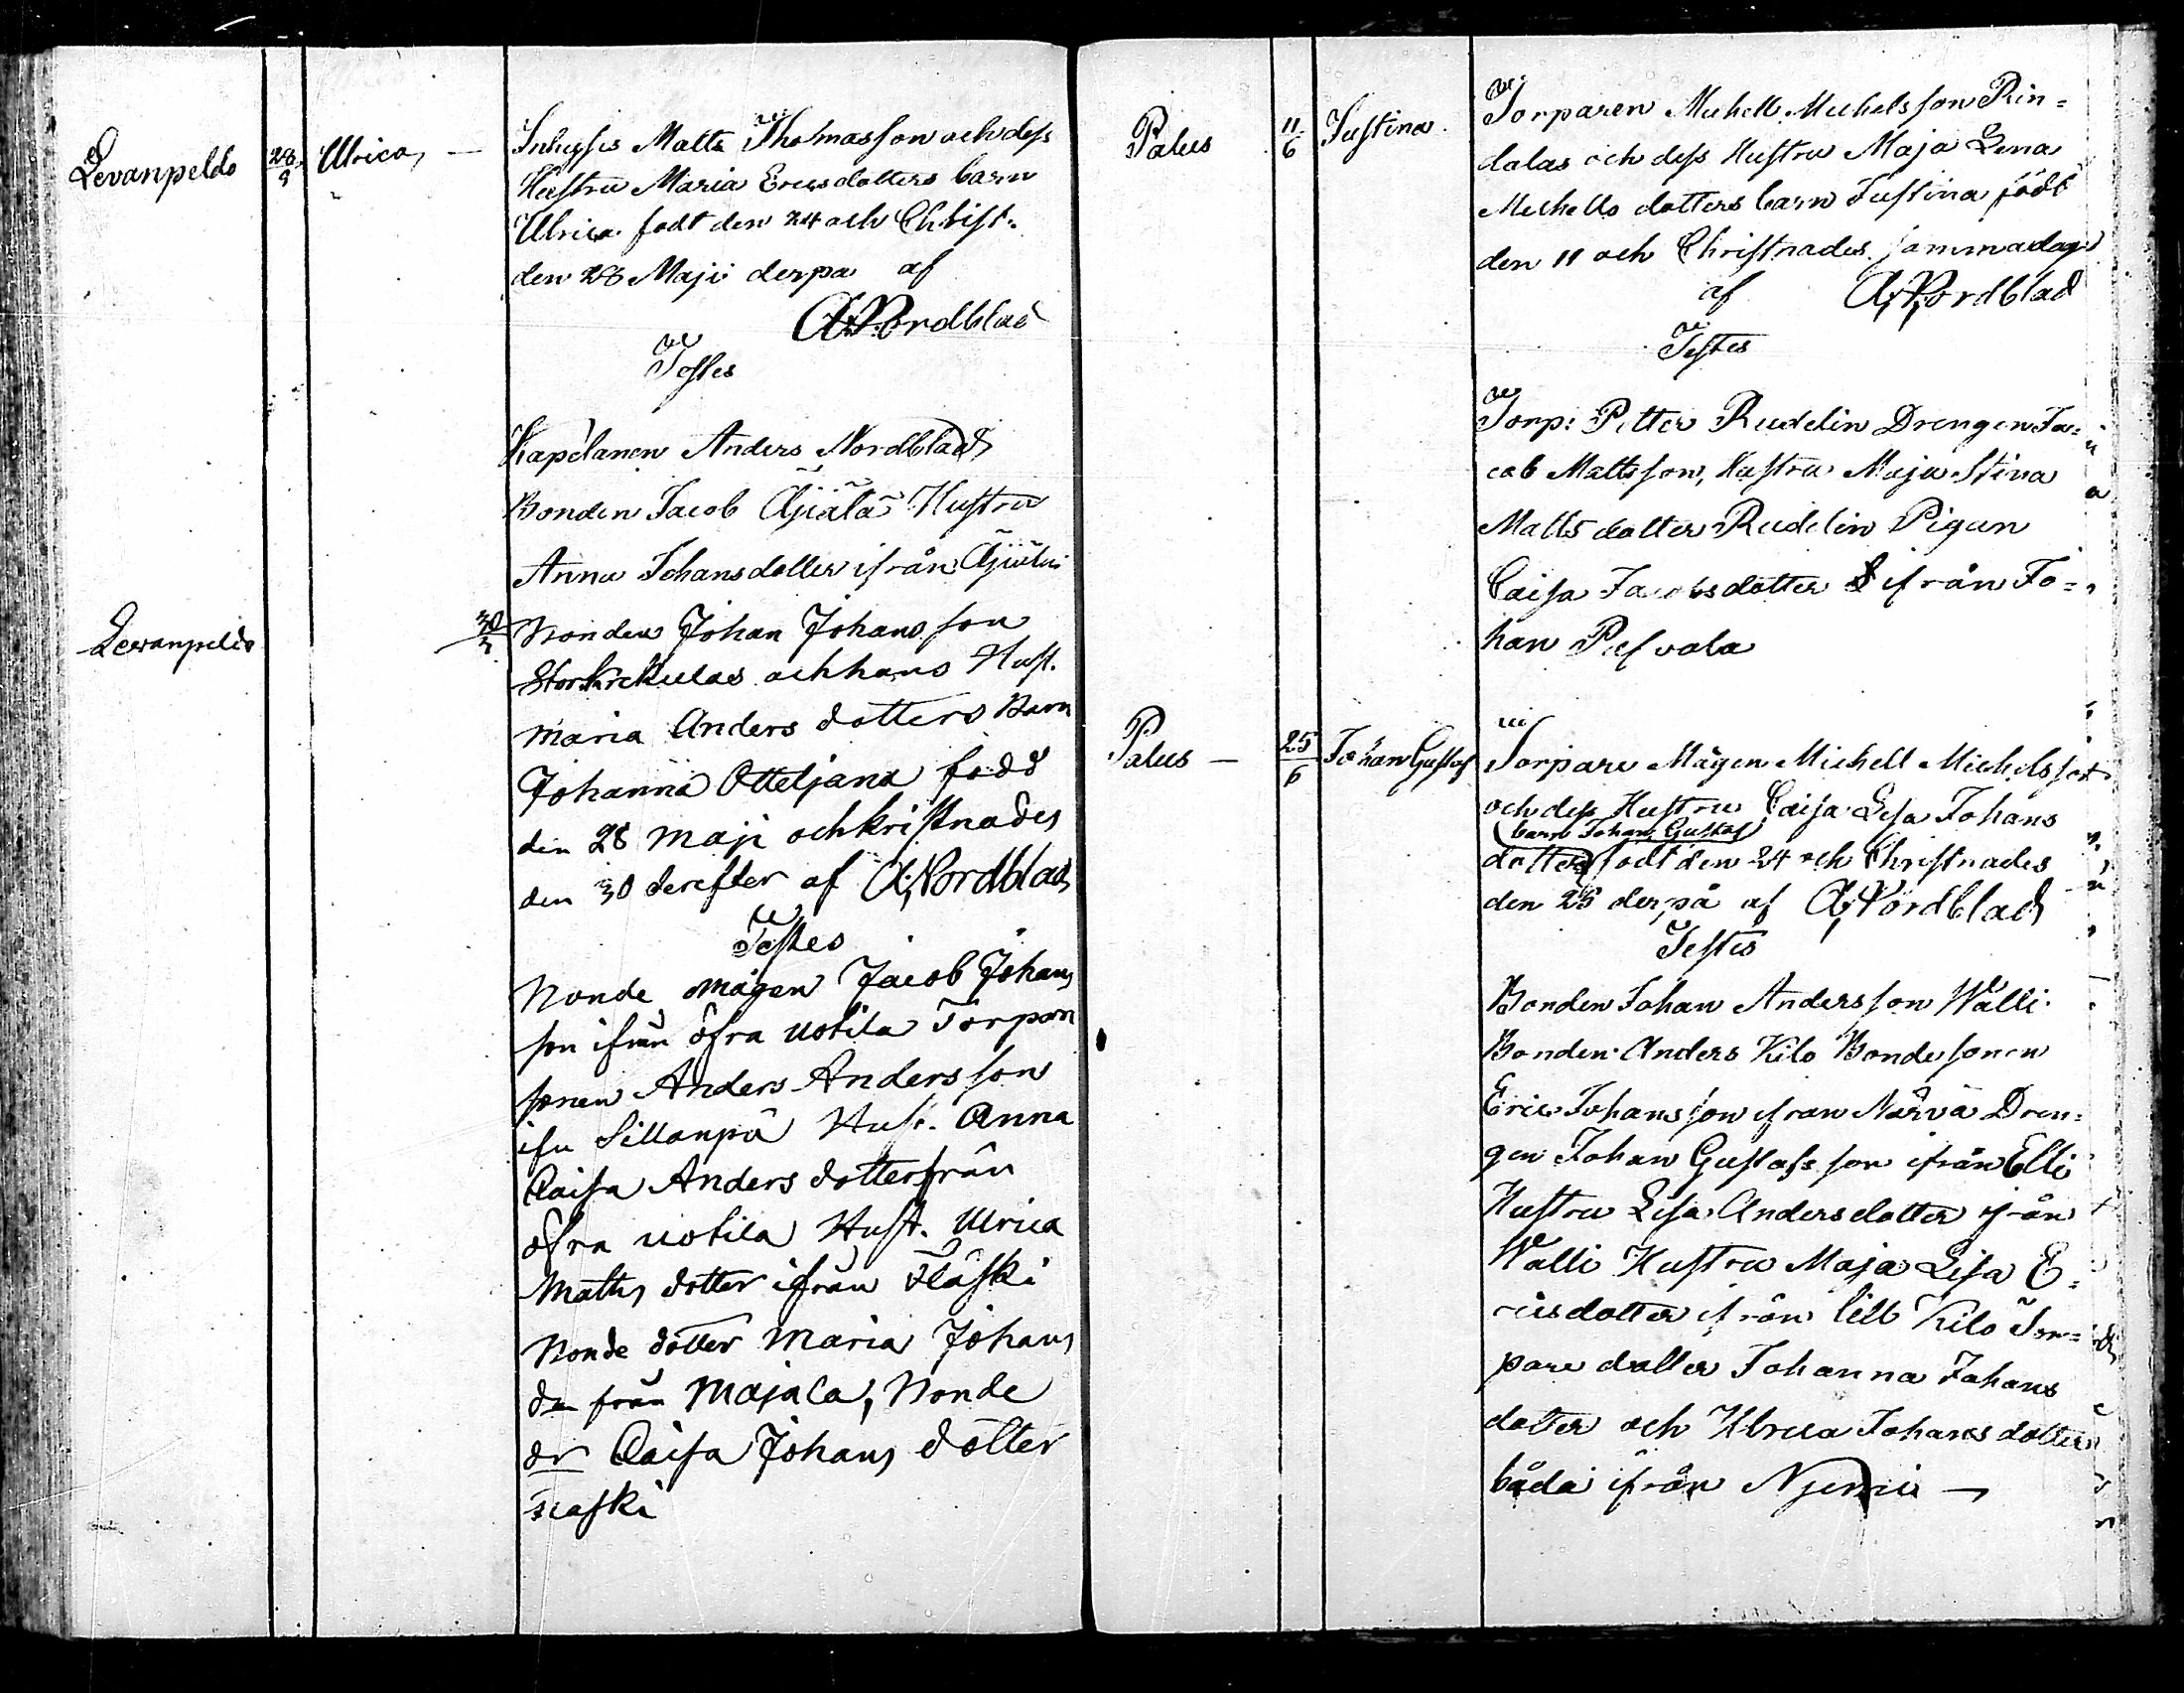 Levanpeldo
28
Ulrica —
Inhyses Matts Thomasson och dess
Hustru Maria Ericsdotters barn
Ulrica födt den 24 och Christ.
den 28 Maji derpa af
A. Nordblad
Testes
Kapelanen Anders Nordblad
Bonden Jacob Äjälä Hustru
Anna Johansdotter ifrån Äjälä
Levanpeldo
30
Bonden Johan Johansson
och hans Hust.
Maria Anders dotters Barn
Johanna Otteljana född
den 28 Maji och kristnades
den 30 derefter af A. Nordblad
Testes
Bonde mågen Jacob Johans
son ifrån öfra uotila Torpare
sonen Anders Andersson
ifrn Sillanpä Hust. Anna
Caisa Anders dotter från
öfra uotila Hust. Ulrica
Matts dotter ifrån
Bonde dotter Maria Johans
dr från Majala, Bonde
dr Caisa Johans dotter
Palus
11
6
Justina
Torparen Michell Michelsson Rin=
dalas och dess Hustru Maja Lena
Michells dotters barn Justina födt
den 11 och Christnades samma dag
af A. Nordblad
Testes
Torp: Petter Rudelin Drengen Ja=
cob Mattsson, Hustru Maja Stina
Matts dotter Rudelin Pigan
Caisa Jacobs dotter ifrån Jo=
han
Palus —
25
6
Johan Gustaf
Torpare Mågen Michell Michelsson
och dess Hustru Caisa Lisa Johans
barn Johan Gustaf
dotters födt den 24 och Christnades
den 25 derpå af A. Nordblad
Testes
Bonden Johan Andersson Wälli
Bonden Anders Kilo Bondesonen
Eric Johansson ifrån Närvä Dren=
gen Johan Gustafsson ifrån Elli
Hustru Lisa Andersdotter ifrån
Wälli Hustru Maja Lisa E=
ricsdotter ifrån lill Kilo Tor=
pare dotter Johanna Johans
dotter och Ulrica Johans dotter
båda ifrån —